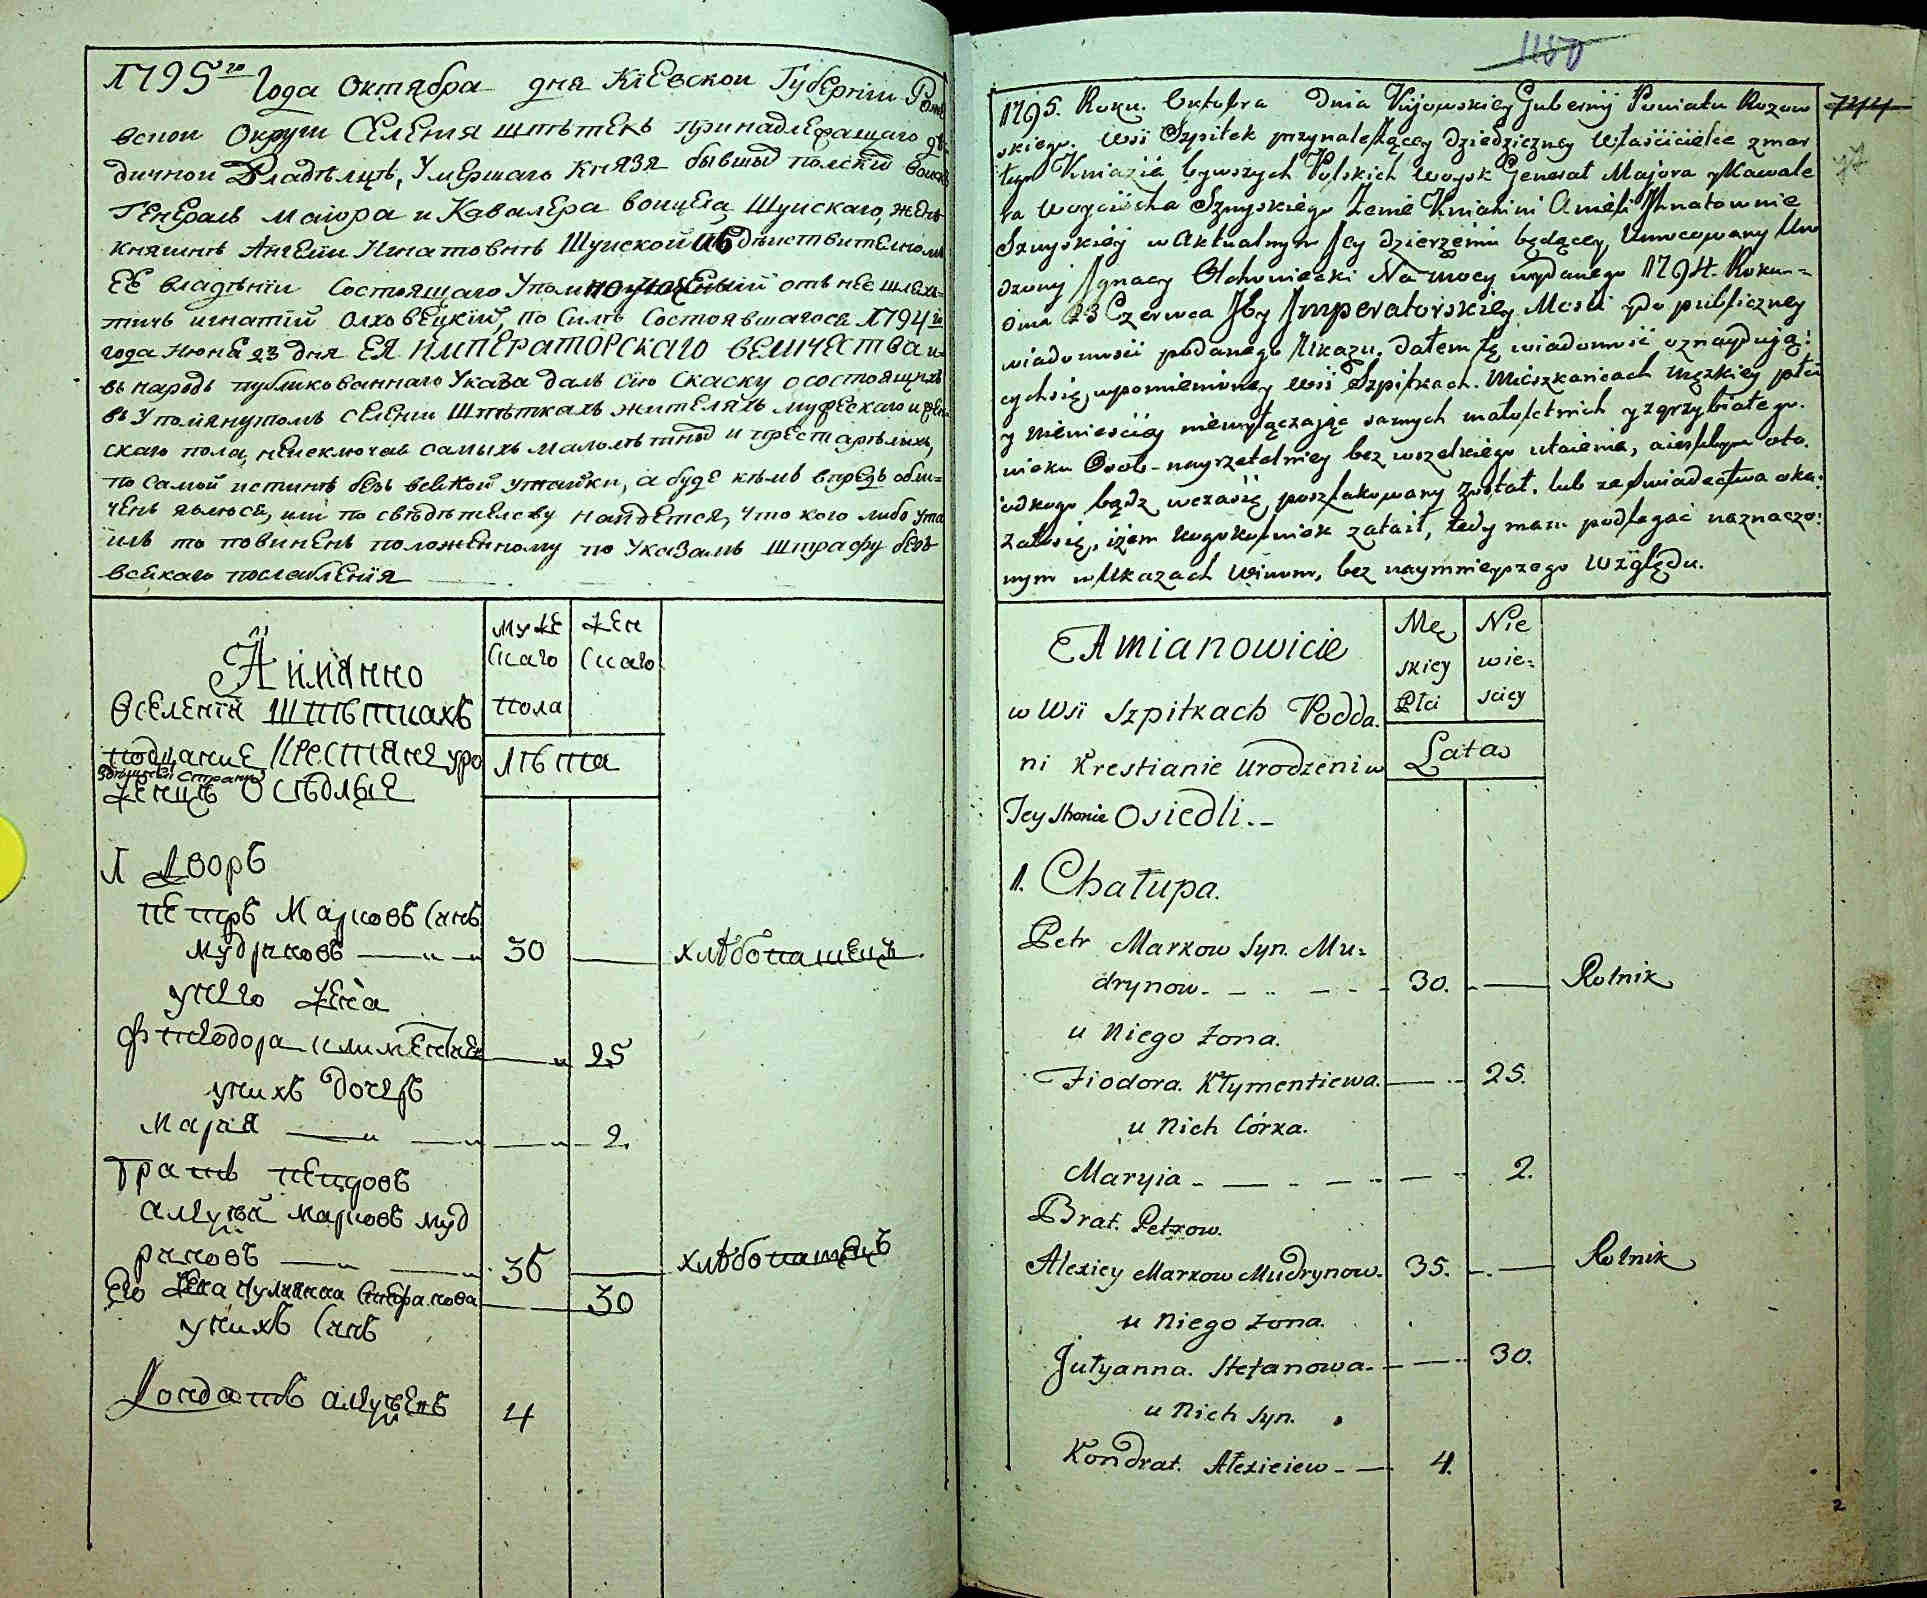 1795го Года Октября дня Киевской Губернии Рома
вской Округи Селения Шпѣтекъ принадлежащаго дѣ
дичной Владѣлцѣ, Умершаго Князя бывшых полских войскъ
Генералъ маiора и Кавалера воицеха Шуйскаго, женѣ
княгинѣ Ангели Игнатовнѣ Шуйской въ дѣиствителномъ
ЕЕ владѣнiи состоящаго Уполномоченный отъ нее шлях=
тичъ игнатiй Олховецкiй, по Силѣ Состоявшагося 1794го
года Июня 23 дня ЕЯ ИМПЕРАТОРСКАГО ВЕЛИЧЕСТВА и
въ народъ публикованнаго Указа далъ сию Скаску о состоящихъ
въ Упомянутомъ селении Шпѣткахъ жителяхъ мужескаго и жен
скаго пола, неисключая самыхъ малолѣтных и престарѣлыхъ,
по самой истиннѣ безъ всякой утайки, а буде кѣмъ впредь обли=
ченъ явлюся, или по свѣдѣтелству найдется, что кого либо ута
илъ то повиненъ положенному по Указамъ Штрафу безъ
всякаго послабленiя
Аимянно
вселенiи Шпѣткахъ
поддание Крестяне уро
здѣшней Страны
женцѣ Осѣдлые
муже
скаго
пола
жен
скаго
Лѣта
1 Дворъ
петръ Марковъ Синъ
мудриковъ 30 хлѣбопашецъ
унего жена
Фтеодора клименьтьева 25
унихъ дочерь
Мария 2.
Братъ петровъ
алеуѣй марковъ муд
риковъ 35 хлѣбопашецъ
его жена Иулиянна Стефанова 30
унихъ Синъ
Кондратъ алеуѣевъ 4
1180
1795. Roku. Oktobra dnia Kijowskiey Gubernij Powiatu Rozow
skiego. Wsi Szpitek przynależącey dziedziczney Właścicielce zmar
łego Kniazia bywszych Polskich woysk Generał Majora y Kawale
ra Woyciecha Szuyskiego Żenie Kniahini Anieli Ihnatownie
Szuyskiey w Aktualnym Jey dzierżeniu będącey, Umocowany Uro
dzony Ignacy Olchowiecki Na mocy wydanego 1794. Roku=
dnia 23 Czerwca Jey Imperatorskiey Mości y do publiczney
wiadomości podanego Ukazu. dałem tę wiadomość oznayduią:
cych się, wpomienioney Wsi Szpitkach. Mieszkańcach Męzkiey płci
y Niewieściey niewyłączaiąc samych małoletnich y zgrzybiałego.
wieku Osob- nayrzetelniey bez wszelkiego utaienia, aieslibym oto.
odkogo bądz wczasie poszlakowany został. lub ze świadectwa oka:
zało się, iżem kogokolwiek zataił, tedy mam podlegać naznaczo:
nym w Ukazach Winom, bez naymnieyszego Względu.
724
A Mianowicie
w Wsi Szpitkach Podda.
ni Krestianie Urodzeni w
Jey Stronie Osiedli.-
Mę
skiey
Płci
Nie
wie:
sciey
Lata
1. Chałupa.
Petr Markow Syn. Mu:
drynow. 30. Rolnik
u Niego żona.
Fiodora. Kłymentiewa. 25.
u Nich Córka.
Maryia 2.
Brat. Petrow.
Alexiey Markow Mudrynow. 35. Rolnik
u Niego żona.
Jułyanna. Stefanowa. 30.
u Nich Syn.
Kondrat. Ałexieiew 4.
2